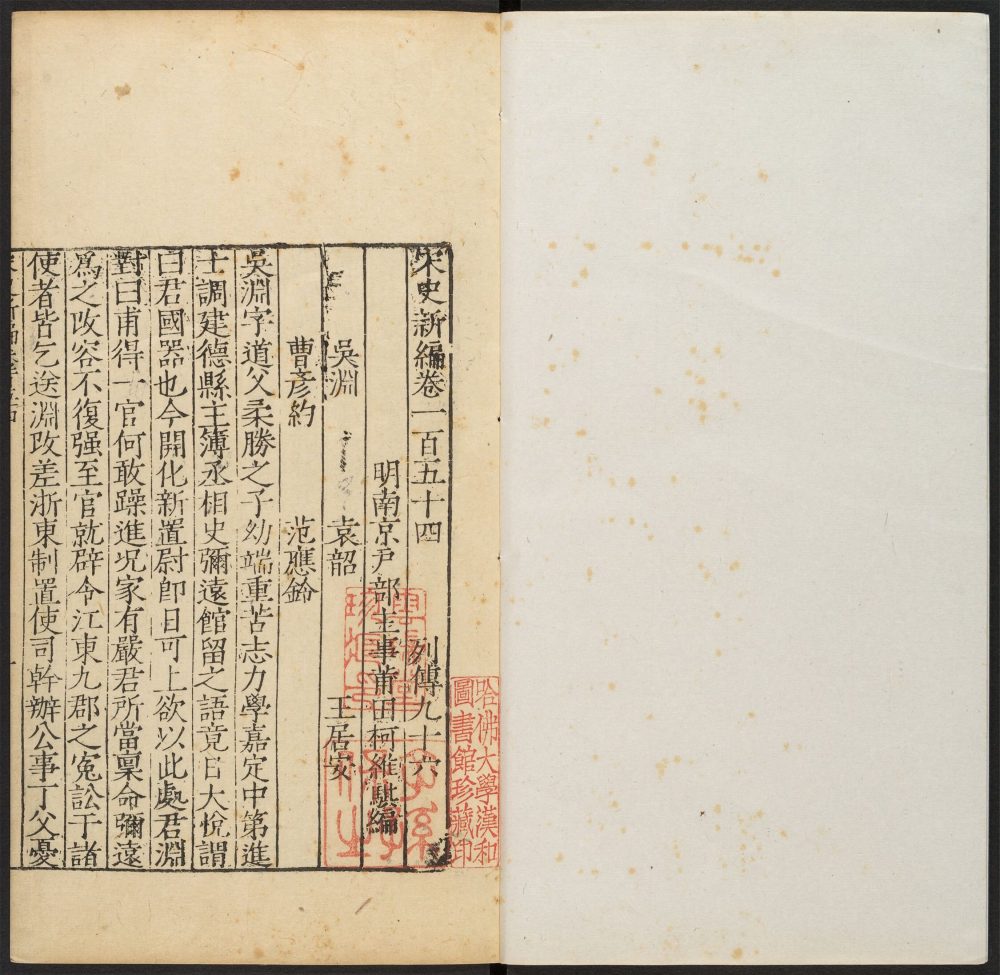 宋史新編卷一百五十四 列傳九十六
明南京戸部主事莆田柯維騏編
吳淵 袁韶 王居安
曹彥約 范應鈴
吳淵字道父柔勝之子幼端重苦志力學嘉定中第進
士調建德縣主簿丞相史彌遠館留之語竟日大悅謂
曰君國器也今開化新置尉卽日可上欲以此處君淵
對曰甫得一官何敢躁進况家有嚴君所當稟命彌遠
爲之改容不復强至官就辟令江東九郡之寃訟于諸
使者皆乞送淵改差浙東制置使司幹辦公事丁父憂
哈佛大學漢和
圖書館珍藏印